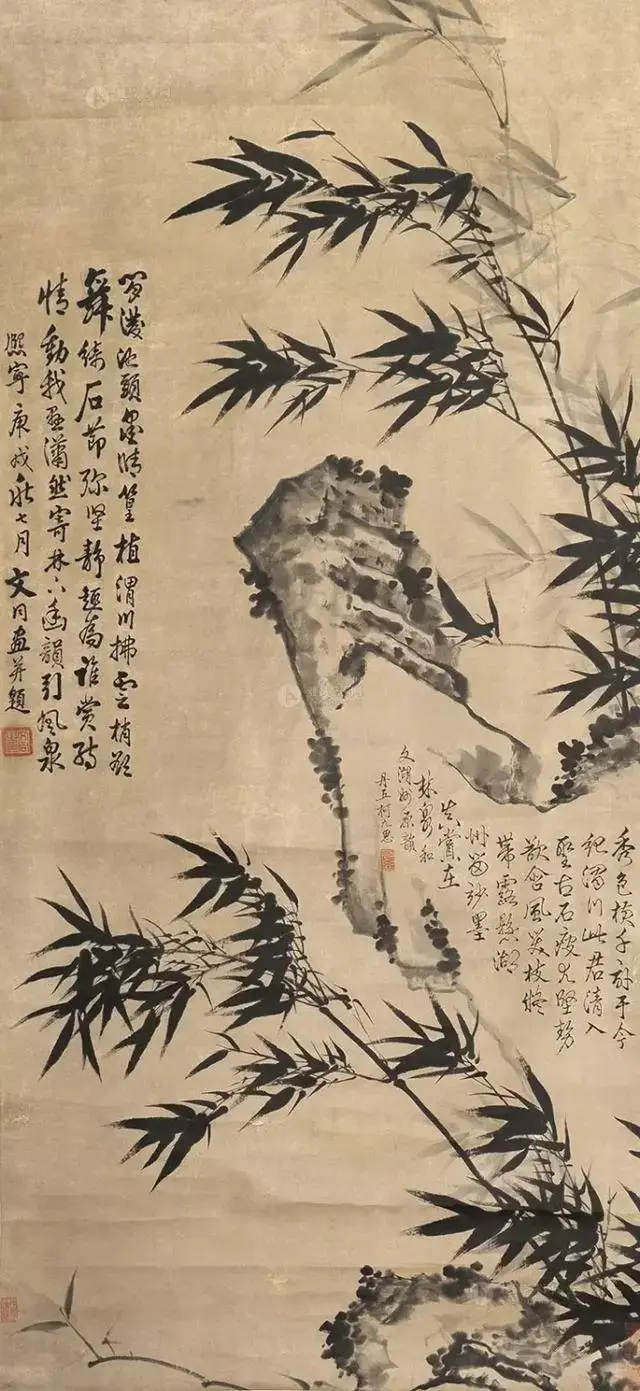 池頭墨晴篁植渭川拂雲梢欲
舞倚石節弥坚靜趣為誰賞詩
情動我瀟然寄林下幽韻引風泉
熙寧庚戌秋七月文同画并題
秀色橫千畝于今
渭川此君清入
聖古石瘦尤堅勢
欲含風笑枝疑
帶露懸湖
州留妙墨
真賞在
林泉和
文湖州原韻
丹丘柯九思